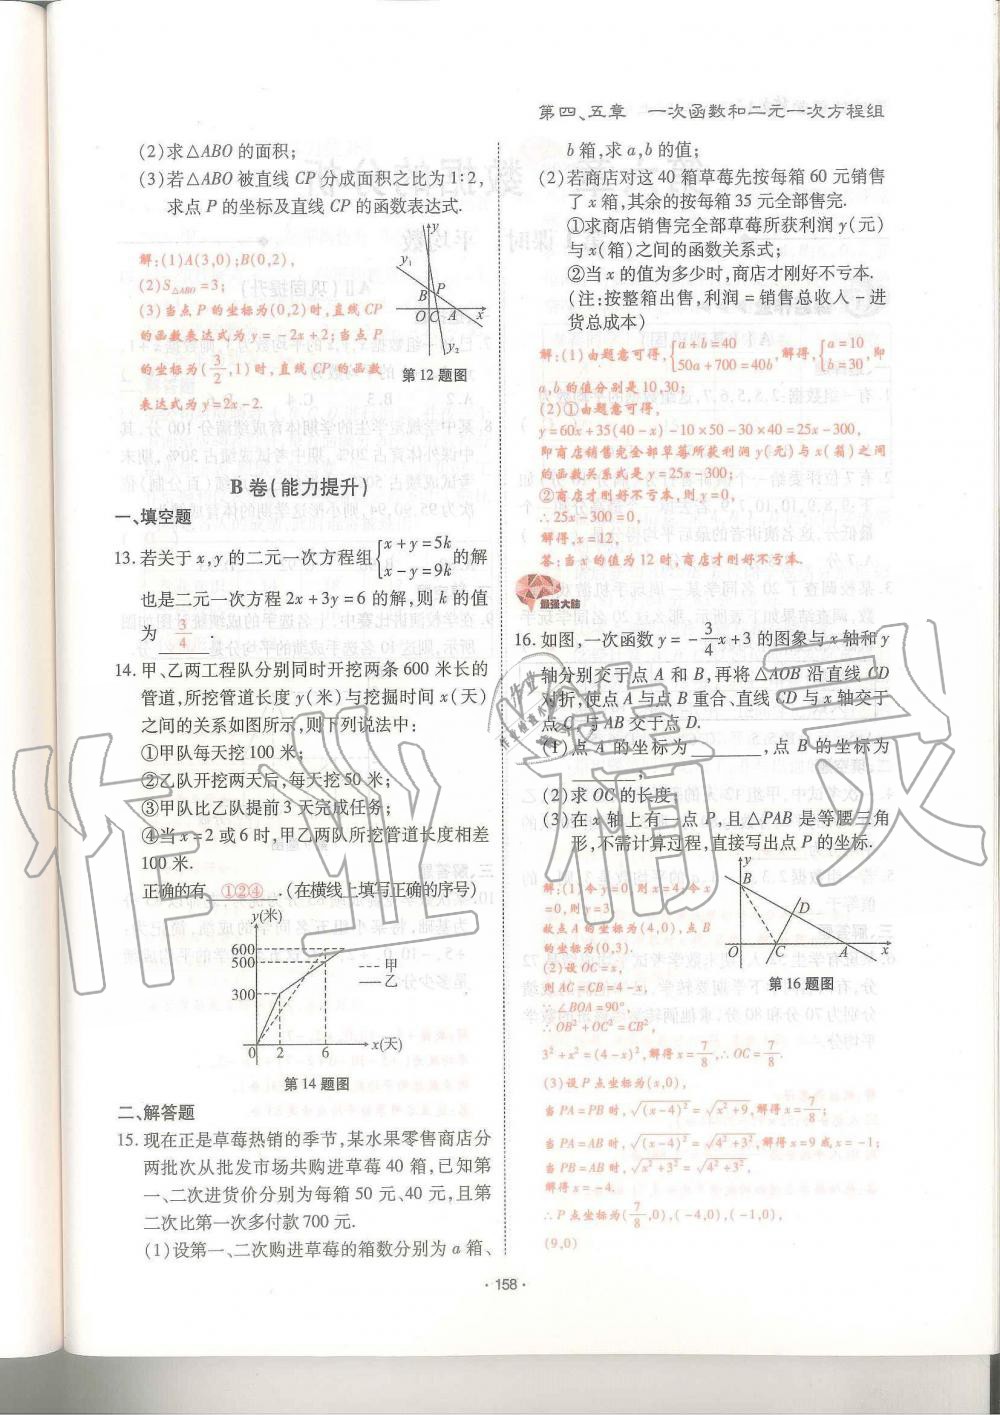 第四、五章　一次函数和二元一次方程组
(2)求△ABO 的面积;
(3)若△ABO 被直线 CP 分成面积之比为 1∶2,
求点 P 的坐标及直线 CP 的函数表达式.
解:(1)A(3,0);B(0,2),
(2)S△ABO=3;
(3)当点 P 的坐标为(0,2)时,直线 CP
的函数表达式为 y=-2x+2;当点 P
的坐标为(3/2,1)时,直线 CP 的函数
表达式为 y=2x-2.
y
y₁
B
P
O
C
A
x
y₂
第 12 题图
B 卷(能力提升)
一、填空题
13.若关于 x,y 的二元一次方程组{x+y=5k
x-y=9k 的解
也是二元一次方程 2x+3y=6 的解,则 k 的值
为 3/4 .
14.甲、乙两工程队分别同时开挖两条 600 米长的
管道,所挖管道长度 y(米)与挖掘时间 x(天)
之间的关系如图所示,则下列说法中:
①甲队每天挖 100 米;
②乙队开挖两天后,每天挖 50 米;
③甲队比乙队提前 3 天完成任务;
④当 x=2 或 6 时,甲乙两队所挖管道长度相差
100 米.
正确的有 ①②④ .(在横线上填写正确的序号)
y(米)
600
500
300
甲
乙
O
2
6
x(天)
第 14 题图
二、解答题
15.现在正是草莓热销的季节,某水果零售商店分
两批次从批发市场共购进草莓 40 箱,已知第
一、二次进货价分别为每箱 50 元、40 元,且第
二次比第一次多付款 700 元.
(1)设第一、二次购进草莓的箱数分别为 a 箱、
b 箱,求 a,b 的值;
(2)若商店对这 40 箱草莓先按每箱 60 元销售
了 x 箱,其余的按每箱 35 元全部售完.
①求商店销售完全部草莓所获利润 y(元)
与 x(箱)之间的函数关系式;
②当 x 的值为多少时,商店才刚好不亏本.
(注:按整箱出售,利润=销售总收入-进
货总成本)
解:(1)由题意可得,{a+b=40
50a+700=40b,解得,{a=10
b=30,即
a,b 的值分别是 10,30;
(2)①由题意可得,
y=60x+35(40-x)-10×50-30×40=25x-300,
即商店销售完全部草莓所获利润 y(元)与 x(箱)之间
的函数关系式是 y=25x-300;
②商店才刚好不亏本,则 y=0,
∴25x-300=0,
解得,x=12,
答:当 x 的值为 12 时,商店才刚好不亏本.
最强大脑
16.如图,一次函数 y=-3/4x+3 的图象与 x 轴和 y
轴分别交于点 A 和 B,再将△AOB 沿直线 CD
对折,使点 A 与点 B 重合、直线 CD 与 x 轴交于
点 C,与 AB 交于点 D.
(1)点 A 的坐标为 ,点 B 的坐标为
;
(2)求 OC 的长度;
(3)在 x 轴上有一点 P,且△PAB 是等腰三角
形,不需计算过程,直接写出点 P 的坐标.
解:(1)令 y=0,则 x=4;令 x
=0,则 y=3,
故点 A 的坐标为(4,0),点 B
的坐标为(0,3).
(2)设 OC=x,
则 AC=CB=4-x,
∵∠BOA=90°,
∴OB²+OC²=CB²,
3²+x²=(4-x)²,解得 x=7/8,∴OC=7/8.
(3)设 P 点坐标为(x,0),
当 PA=PB 时,√(x-4)²=√x²+9,解得 x=7/8;
当 PA=AB 时,√(x-4)²=√4²+3²,解得 x=9 或 x=-1;
当 PB=AB 时,√x²+3²=√4²+3²,
解得 x=-4.
∴P 点坐标为(7/8,0),(-4,0),(-1,0),
(9,0)
y
B
D
O
C
A
x
第 16 题图
· 158 ·
作业精灵